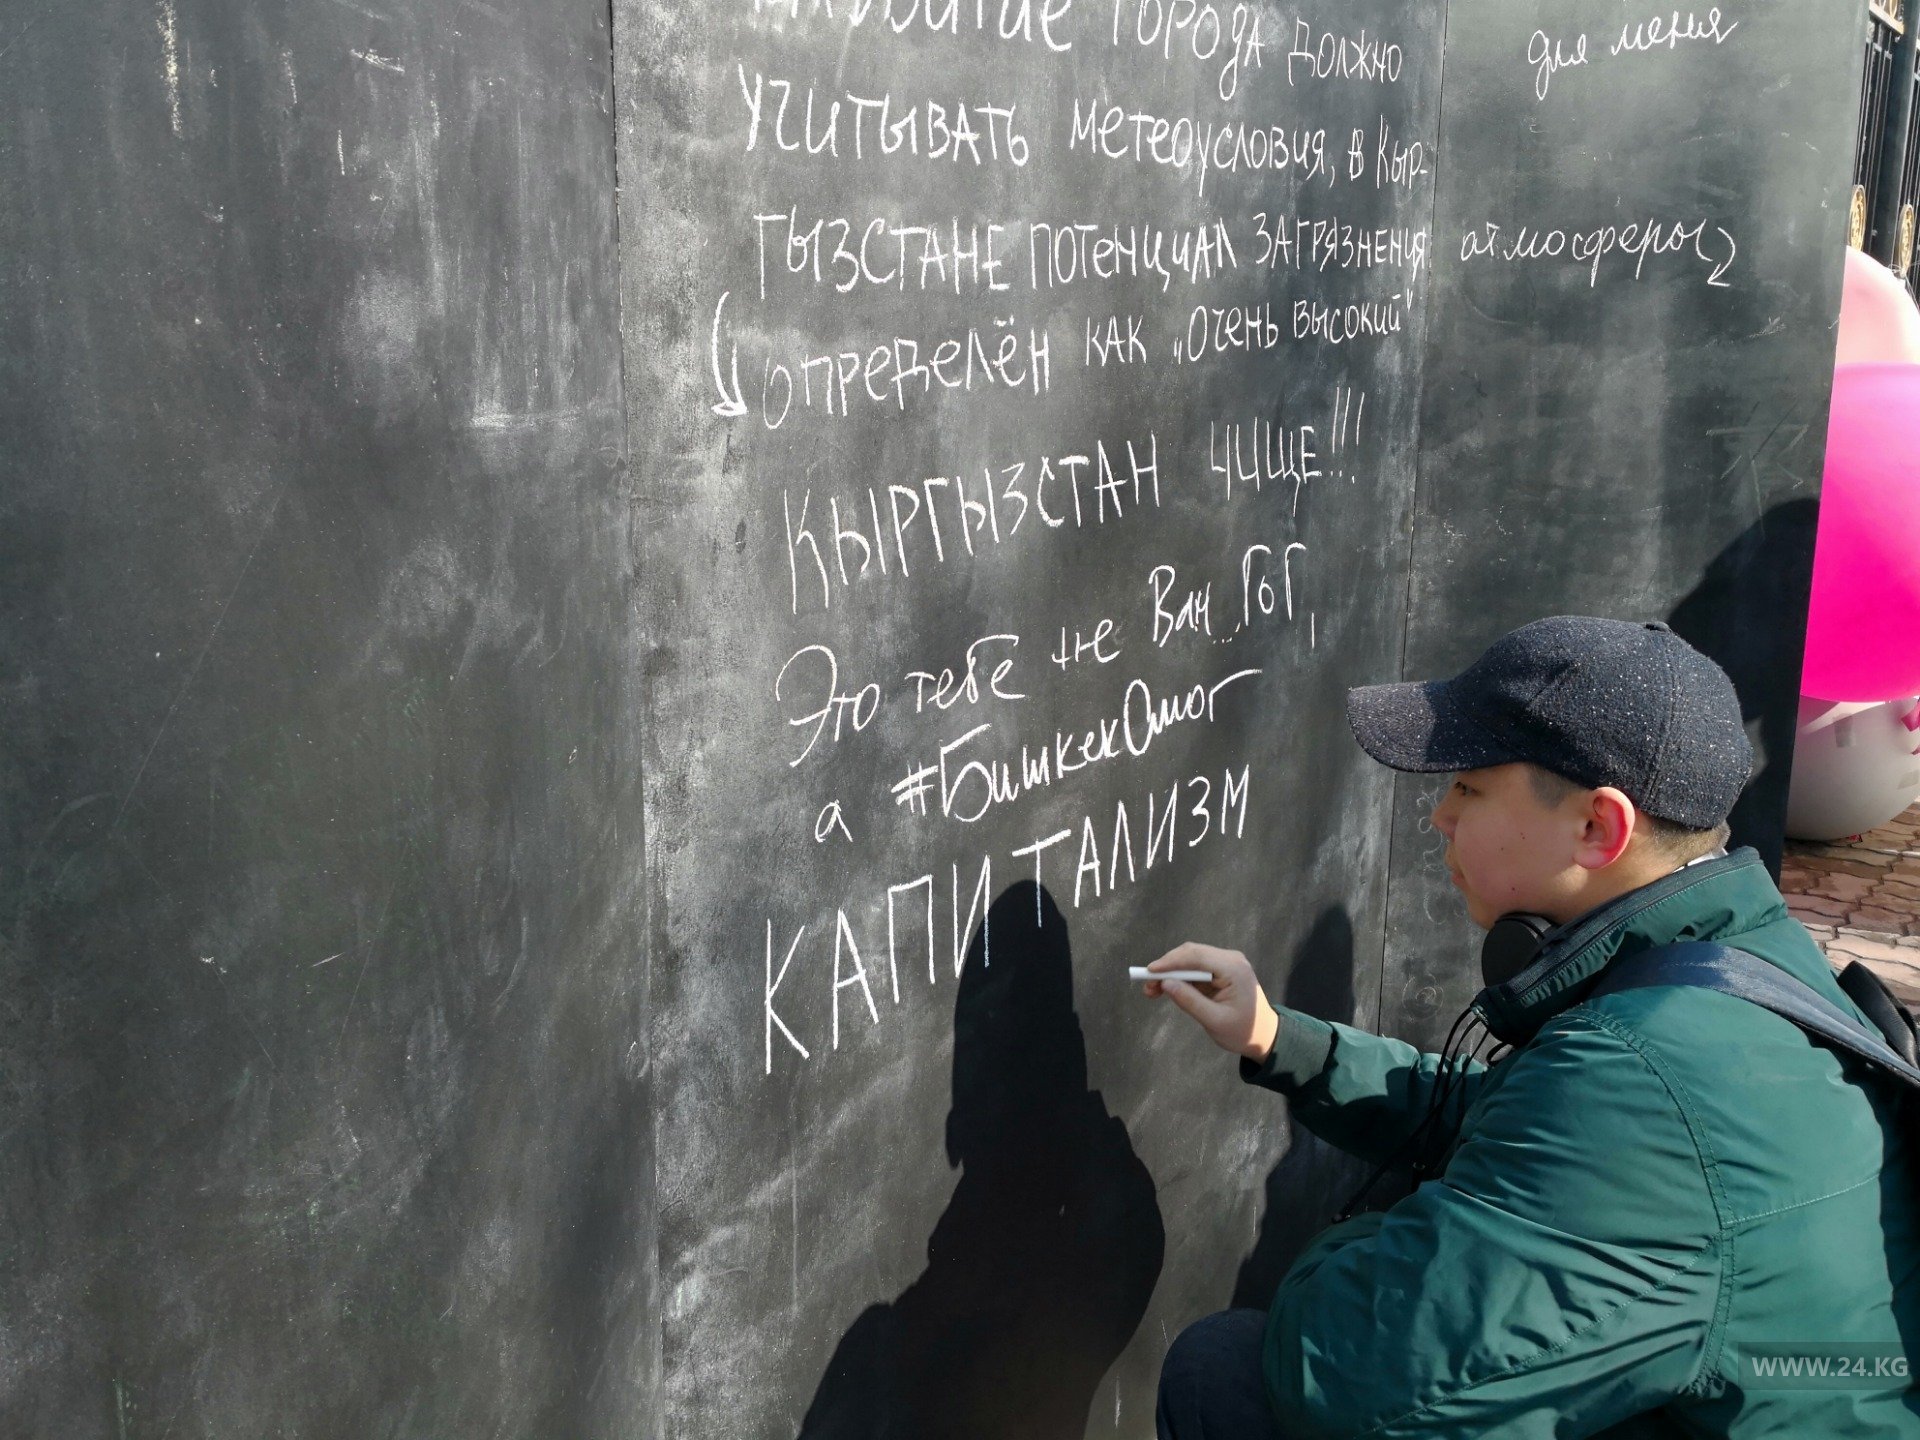 Развитие города должно
для меня
учитывать метеоусловия, в Кыр-
гызстане потенциал загрязнения атмосферы
определён как „очень высокий"
Кыргызстан чище!!!
Это тебе не Ван... Гог,
а #БишкекСмог
КАПИТАЛИЗМ
WWW.24.KG